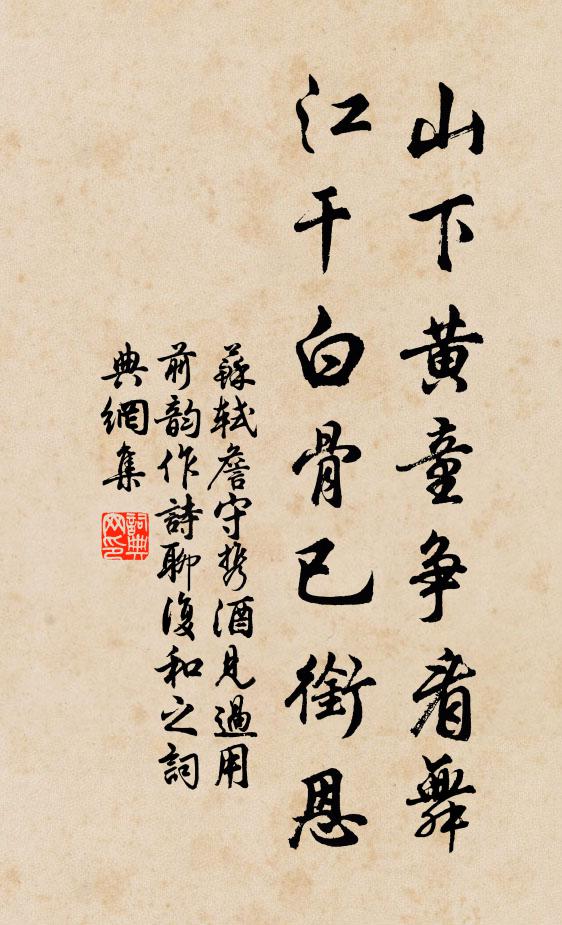 山下黃童爭看舞
江干白骨已銜恩
蘇軾詹守攜酒見過用
前韵作詩聊復和之詞
典網集
詞典网印